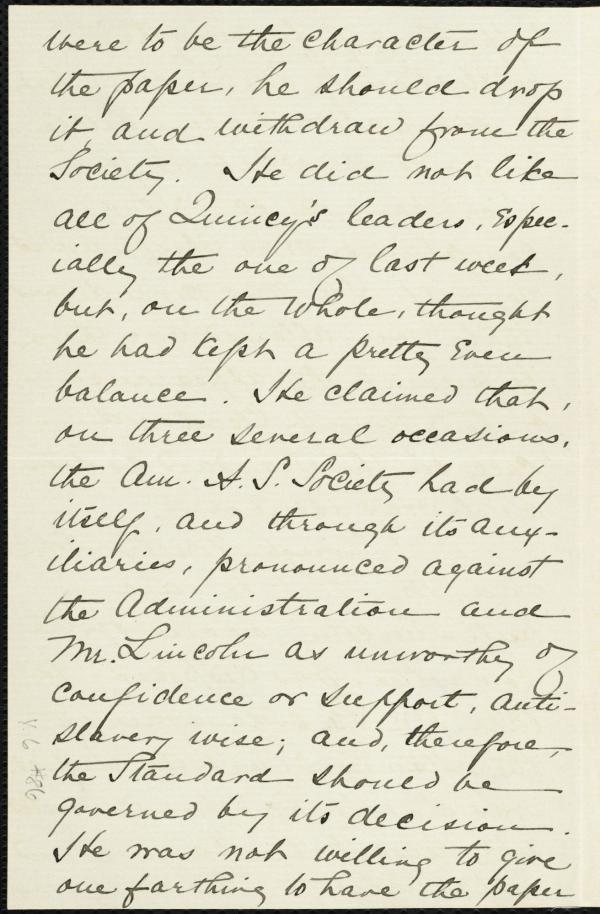 were to be the character of
the paper, he should drop
it, and withdraw from the
Society. He did not like
all of Quincy's leaders, espec-
ially the one of last week,
but, on the whole, thought
he had kept a pretty even
balance. He claimed that,
on three several occasions,
the Am. A. S. Society had by
itself, and through its aux-
iliaries, pronounced against
the Administration and
Mr. Lincoln as unworthy of
confidence or support, anti-
slavery wise; and, therefore,
the Standard should be
governed by its decision.
He was not willing to give
one farthing to have the paper